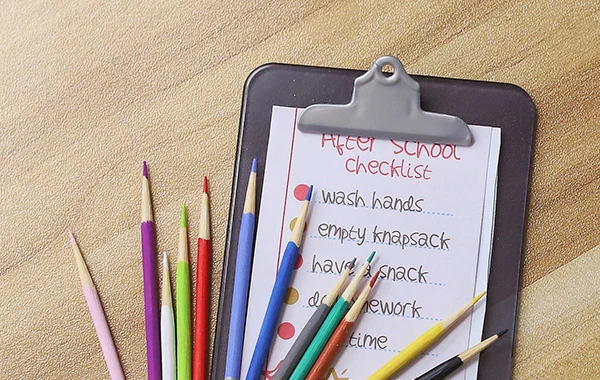 After School
checklist
wash hands
empty knapsack
have a snack
do homework
time